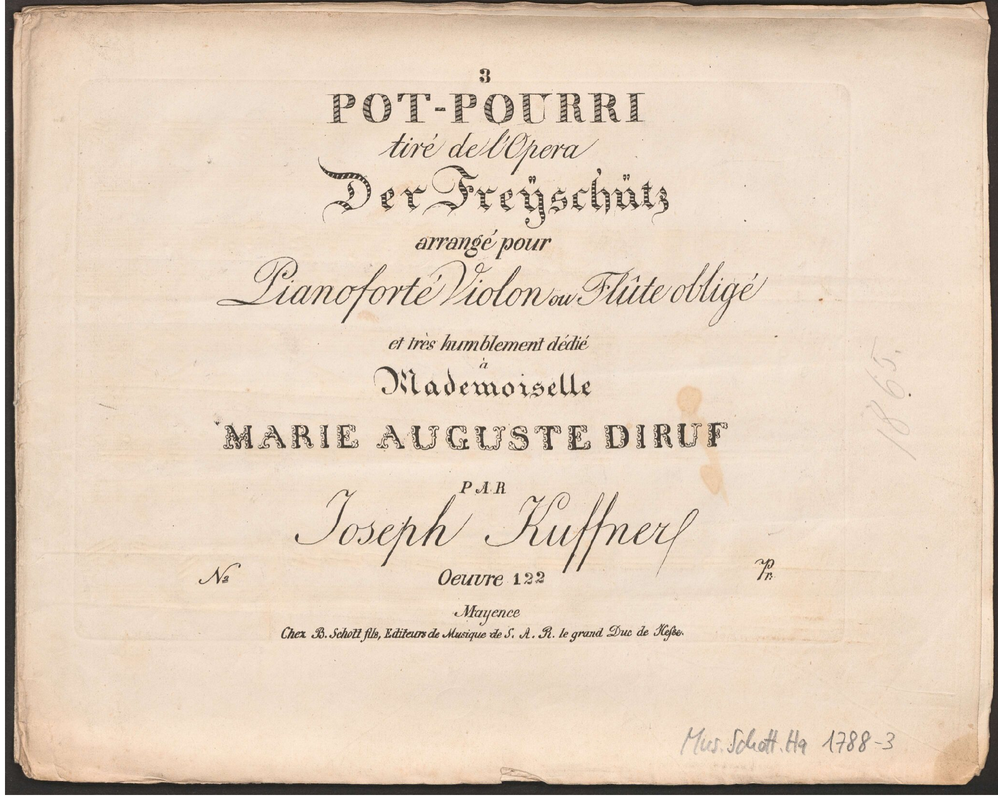 3
POT-POURRI
tiré de l'Opera
Der Freÿschütz
arrangé pour
Pianoforté Violon ou Flûte obligé
et très humblement dédié
à
Mademoiselle
MARIE AUGUSTE DIRUF
PAR
Joseph Kuffner
No Oeuvre 122 Pr.
Mayence
Chez B. Schott fils, Editeurs de Musique de S. A. R. le grand Duc de Heſse.
1865.
Mus. Schott. Ha 1788-3